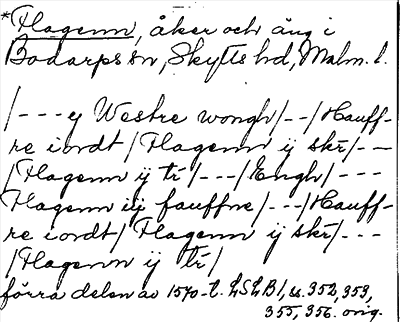 *Flagenn, åker och äng i
Bodarps sn, Skytts hd, Malm. l.
/--- ej Westre wongh/--/Hauff-
re iordt/Flagenn ij skr/---
/Flagenn ij tr/---/Engh/---
Flagenn iij fauffne/---/Hauff-
re iordt/Flagenn ij skr/---
/Flagenn ij tr/
förra delen av 1570-t. LSLB1, s. 352, 353,
355, 356. orig.